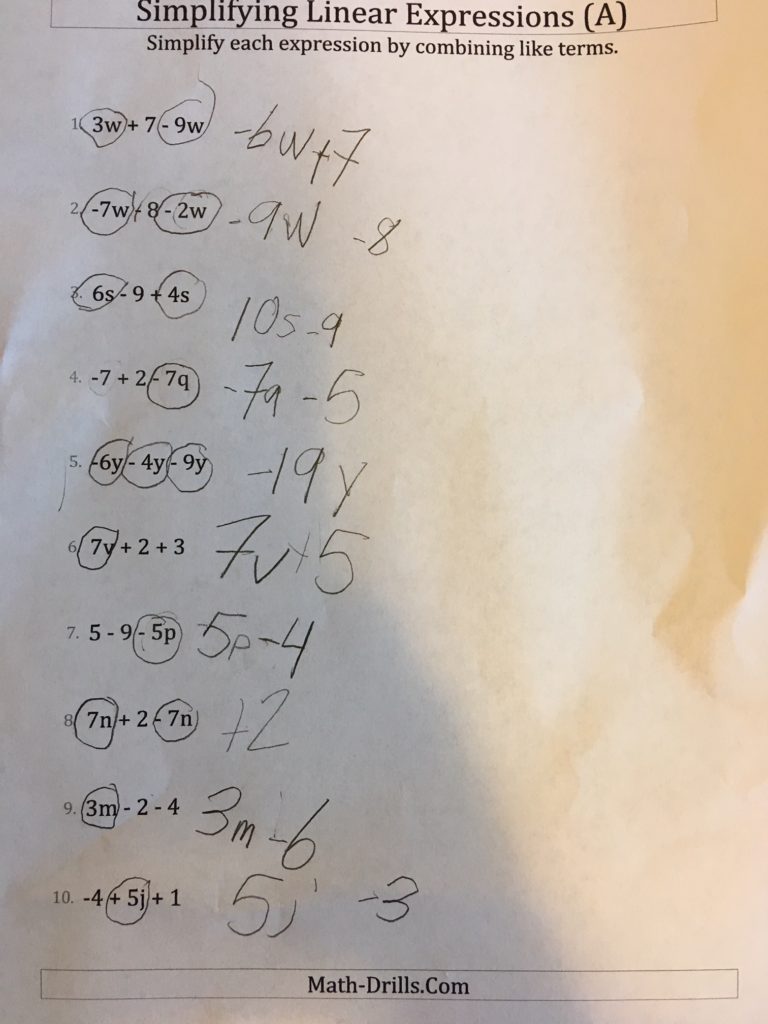 Simplifying Linear Expressions (A)
Simplify each expression by combining like terms.
1. 3w + 7 - 9w -6w+7
2. -7w - 8 - 2w -9w -8
3. 6s - 9 + 4s 10s-9
4. -7 + 2 - 7q -7q -5
5. -6y - 4y - 9y -19y
6. 7v + 2 + 3 7v+5
7. 5 - 9 - 5p 5p-4
8. 7n + 2 - 7n +2
9. 3m - 2 - 4 3m-6
10. -4 + 5j + 1 5j -3
Math-Drills.Com